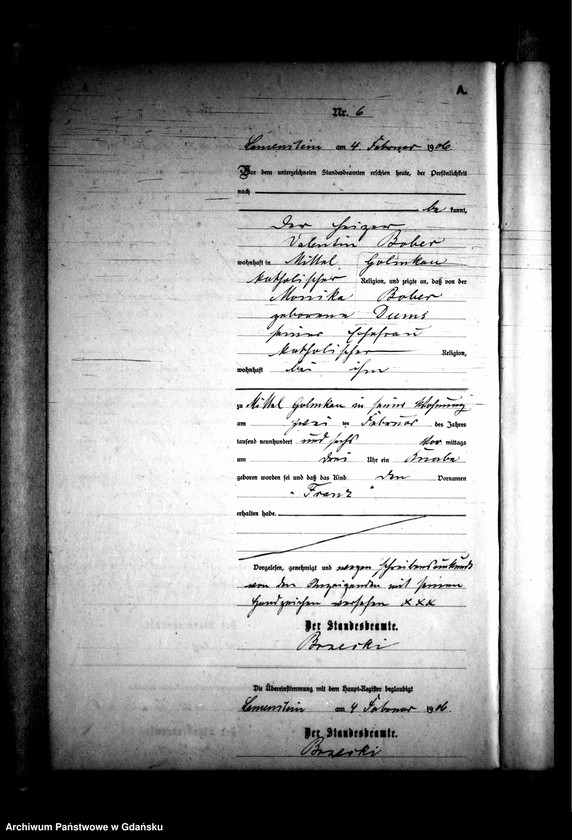 A.
Nr. 6
Lewenstein am 4 Februar 1906.
Vor dem unterzeichneten Standesbeamten erschien heute, der Persönlichkeit
nach
be kannt,
der Heizer
Valentin Bober
wohnhaft in Mittel Golmkau
katholischer Religion, und zeigte an, daß von der
Monika Bober
geborene Dums
seiner Ehefrau
katholischer Religion,
wohnhaft bei ihm
zu Mittel Golmkau in seiner Wohnung
am zwei ten Februar des Jahres
tausend neunhundert und sechs Vor mittags
um drei Uhr ein Knabe
geboren worden sei und daß das Kind den Vornamen
„Franz"
erhalten habe.
Vorgelesen, genehmigt und wegen Schreibensunkunde
von dem Anzeigenden mit seinen
Handzeichen versehen xxx
Der Standesbeamte.
Brzeski
Die Übereinstimmung mit dem Haupt-Register beglaubigt
Lewenstein am 4 Februar 1906.
Der Standesbeamte.
Brzeski
Archiwum Państwowe w Gdańsku